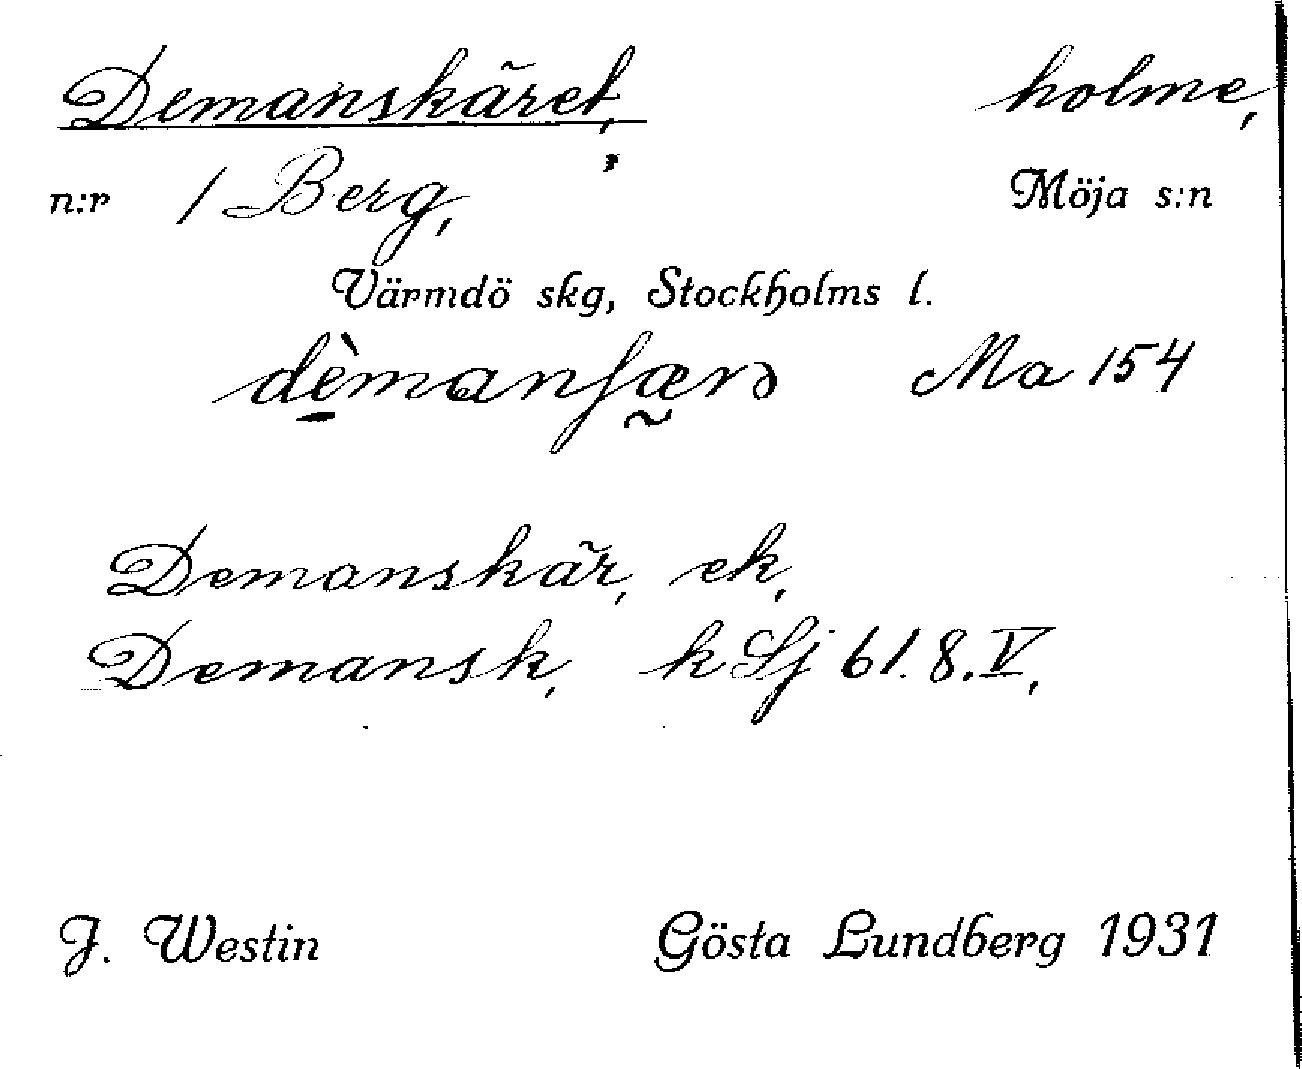 Demanskäret, holme,
n:r 1 Berg, Möja s:n
Värmdö skg, Stockholms l.
dèmanʃærə Ma 154
Demanskär, ek,
Demansk, k Sj 61.8.V,
J. Westin Gösta Lundberg 1931